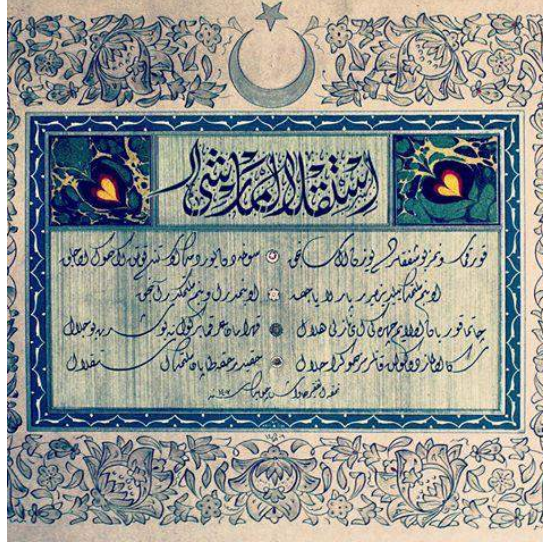 استقلال مارشی
قورقما سونمز بو شفقلرده یوزن آل سنجاق سونمه‌دن یوردمك اوستنده توتن اك صوك اوجاق
او بنم ملتمك ییلدیزیدر پارلایاجق او بنمدر او بنم ملتمكدر آنجق
چاتما قوربان اولایم چهره‌كی ای نازلی هلال قهرمان عرقمه بر كول نه بو شدت بو جلال
سكا اولماز دوكولن قانلریمز صوكرا حلال حقیدر حقه طاپان ملتمك استقلال